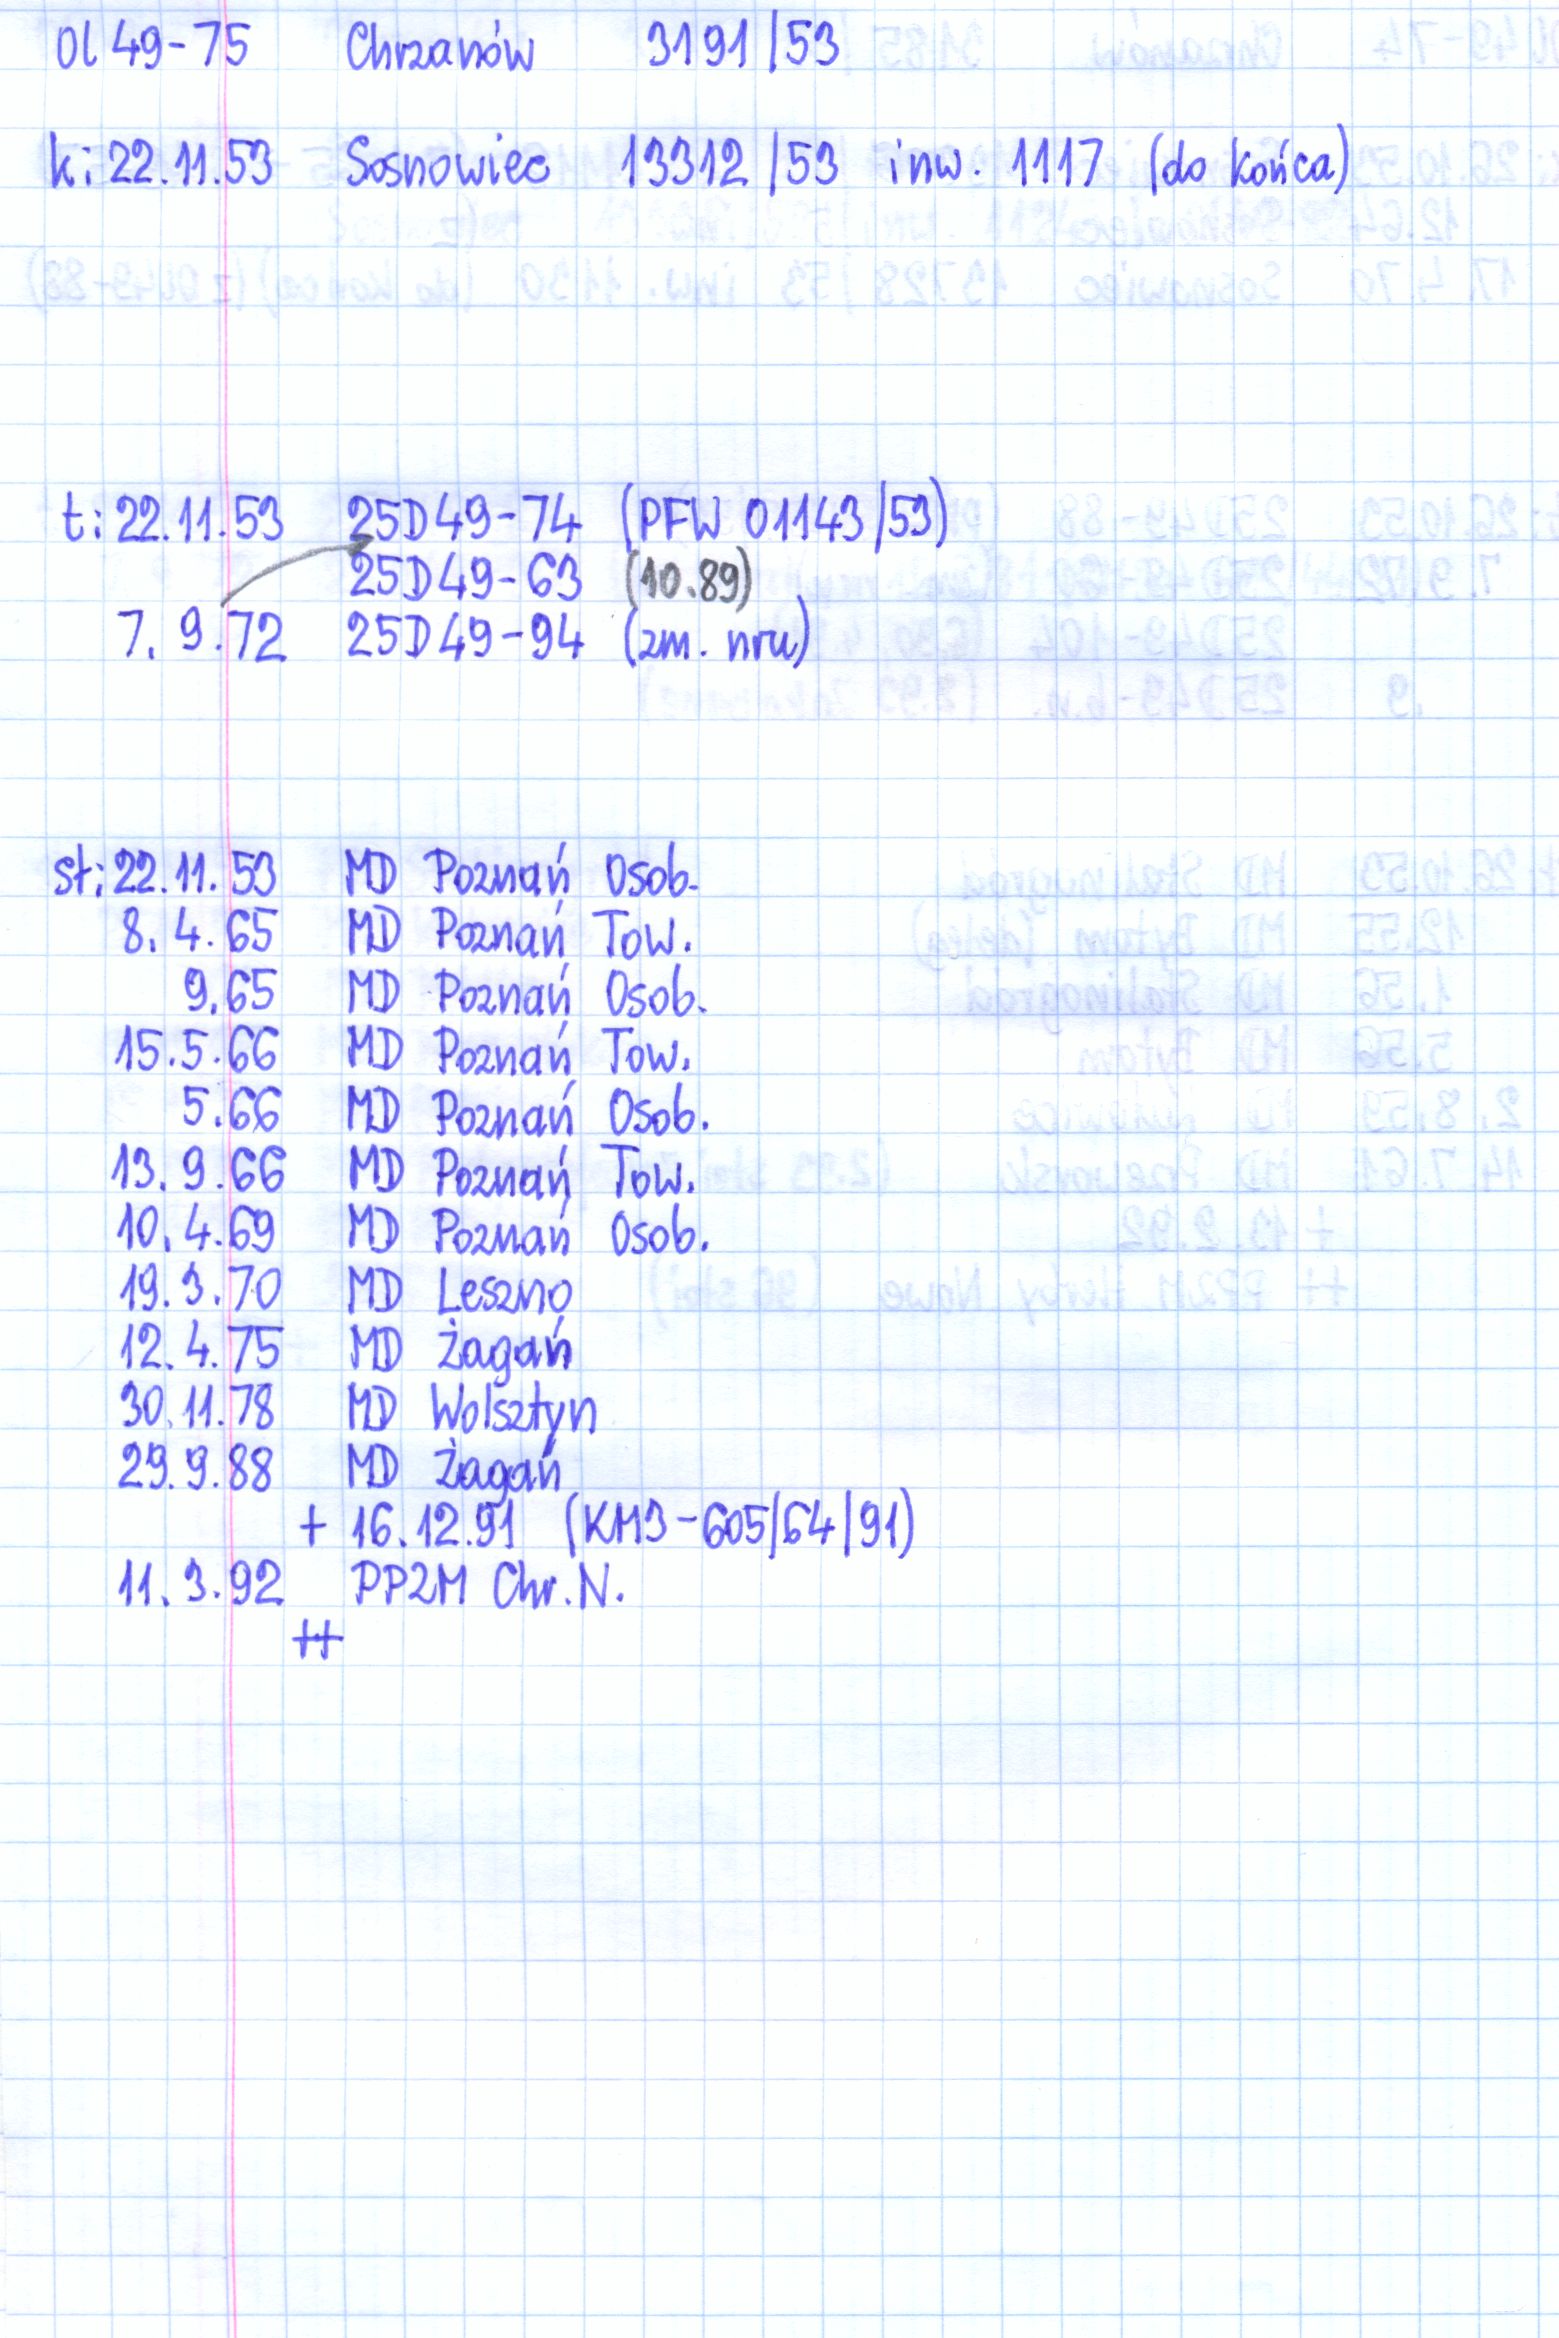 Ol 49-75 Chrzanów 3191/53
k: 22.11.53 Sosnowiec 13312/53 inw. 1117 (do końca)
t: 22.11.53 25D49-74 (PFW 01143/53)
25D49-63 (10.89)
7.9.72 25D49-94 (zm. nru)
st: 22.11.53 MD Poznań Osob.
8.4.65 MD Poznań Tow.
9.65 MD Poznań Osob.
15.5.66 MD Poznań Tow.
5.66 MD Poznań Osob.
13.9.66 MD Poznań Tow.
10.4.69 MD Poznań Osob.
19.3.70 MD Leszno
12.4.75 MD Żagań
30.11.78 MD Wolsztyn
29.9.88 MD Żagań
+ 16.12.91 (KM3-605/64/91)
11.3.92 PPZM Chr.N.
++